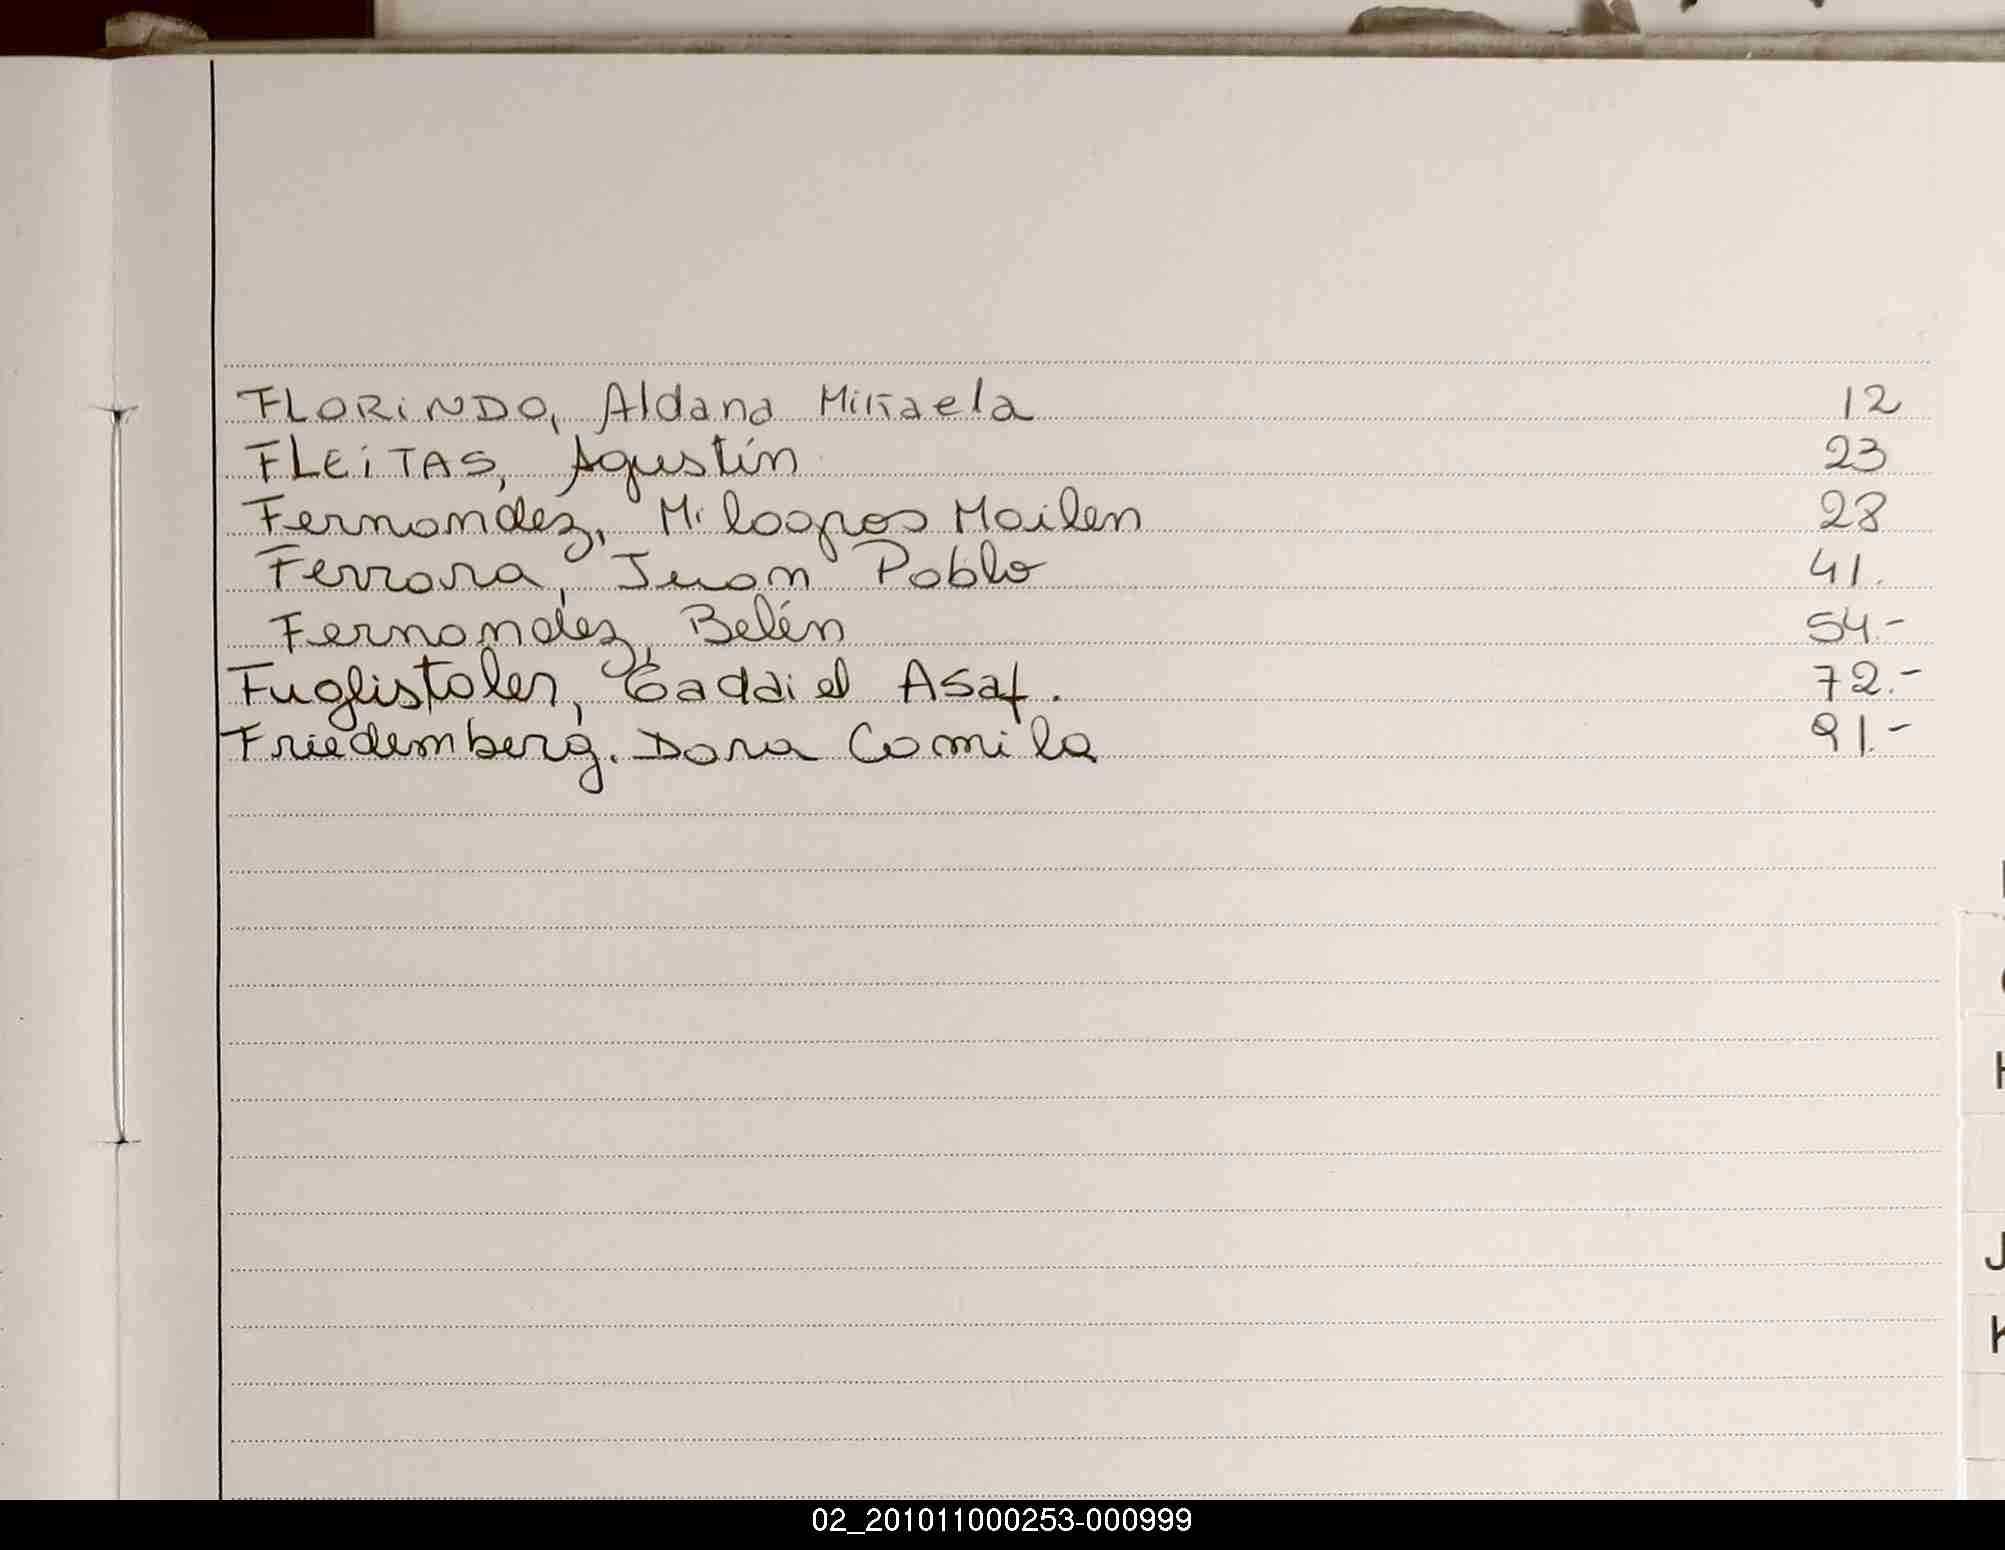 FLORINDO, Aldana Mikaela 12
FLEITAS, Agustín 23
Fernandez, Milagros Mailen 28
Ferrara, Juan Pablo 41.
Fernandez, Belén 54.-
Fuglistaler, Gaddiel Asaf. 72.-
Friedemberg. Dora Camila 91.-
H
J
K
02_201011000253-000999